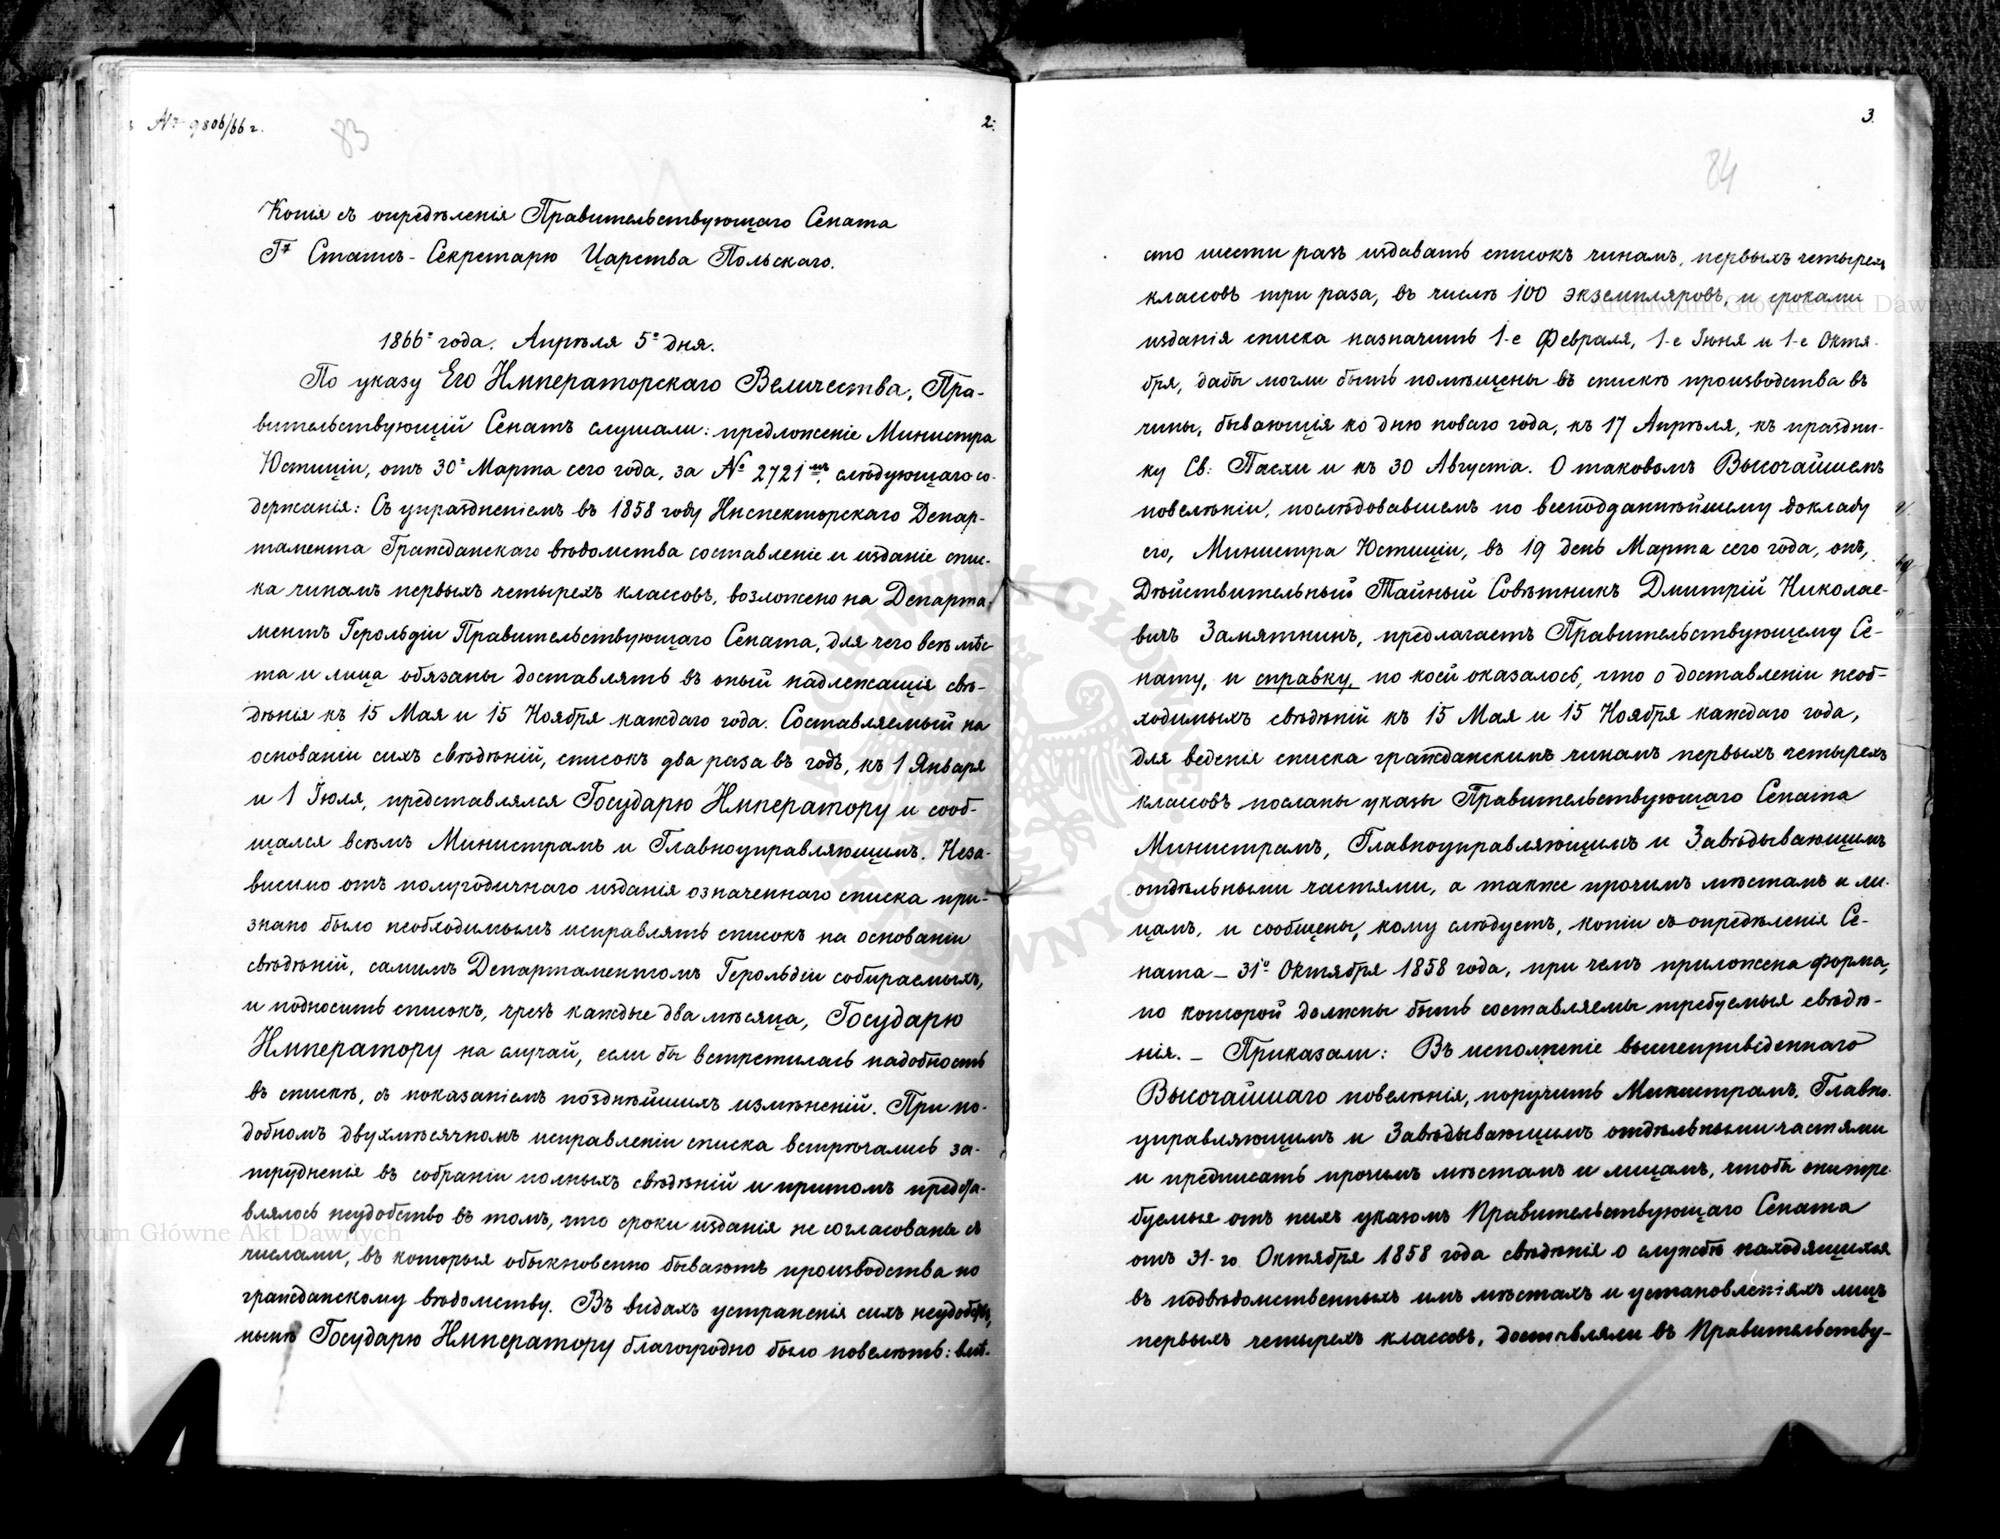 № 9806/66 г.
83
2.
Копія съ опредѣленія Правительствующаго Сената
Гну Статсъ-Секретарю Царства Польскаго.
1866го года. Апрѣля 5го дня.
По указу Его Императорскаго Величества, Пра-
вительствующій Сенатъ слушали: предложеніе Министра
Юстиціи, отъ 30го Марта сего года, за № 2721мъ, слѣдующаго со-
держанія: Съ упраздненіемъ въ 1858 году Инспекторскаго Депар-
тамента Гражданскаго вѣдомства составленіе и изданіе спис-
ка чинамъ первыхъ четырехъ классовъ, возложено на Департа-
ментъ Герольдіи Правительствующаго Сената, для чего всѣ мѣс-
та и лица обязаны доставлять въ оный надлежащія свѣ-
дѣнія къ 15 Мая и 15 Ноября каждаго года. Составляемый на
основаніи сихъ свѣдѣній, списокъ два раза въ годъ, къ 1 Января
и 1 Іюля, представлялся Государю Императору и сооб-
щался всѣмъ Министрамъ и Главноуправляющимъ. Неза-
висимо отъ полугодичнаго изданія означеннаго списка при-
знано было необходимымъ исправлять списокъ на основаніи
свѣдѣній, самимъ Департаментомъ Герольдіи собираемыхъ,
и подносить списокъ, чрезъ каждые два мѣсяца, Государю
Императору на случай, если бы встретилась надобность
въ спискѣ, съ показаніемъ позднѣйшихъ измѣненій. При по-
добномъ двухмѣсячномъ исправленіи списка встрѣчались за-
трудненія въ собраніи полныхъ свѣдѣній и притомъ предста-
влялось неудобство въ томъ, что сроки изданія не согласованы съ
числами, въ которыя обыкновенно бываютъ производства по
гражданскому вѣдомству. Въ видахъ устраненія сихъ неудобствъ,
нынѣ Государю Императору благоугодно было повелѣть: вмѣ-
3.
84
сто шести разъ издавать списокъ чинамъ, первыхъ четырехъ
классовъ три раза, въ числѣ 100 экземпляровъ, и сроками
изданія списка назначить 1-е Февраля, 1-е Іюня и 1-е Октя-
бря, дабы могли быть помѣщены въ спискѣ производства въ
чины, бывающія ко дню новаго года, къ 17 Апрѣля, къ праздни-
ку Св: Пасхи и къ 30 Августа. О таковомъ Высочайшемъ
повелѣніи, послѣдовавшемъ по всеподданнѣйшему докладу
его, Министра Юстиціи, въ 19 день Марта сего года, онъ,
Дѣйствительный Тайный Совѣтникъ Дмитрій Николае-
вичъ Замятнинъ, предлагаетъ Правительствующему Се-
нату, и справку, по коей оказалось, что о доставленіи необ-
ходимыхъ свѣдѣній къ 15 Мая и 15 Ноября каждаго года,
для веденія списка гражданскимъ чинамъ первыхъ четырехъ
классовъ посланы указы Правительствующаго Сената
Министрамъ, Главноуправляющимъ и Завѣдывающимъ
отдѣльными частями, а также прочимъ мѣстамъ и ли-
цамъ, и сообщены, кому слѣдуетъ, копіи съ опредѣленія Се-
ната – 31го Октября 1858 года, при чемъ приложена форма,
по которой должны быть составляемы требуемыя свѣдѣ-
нія. – Приказали: Въ исполненіе вышеприведеннаго
Высочайшаго повелѣнія, поручить Министрамъ, Главно-
управляющимъ и Завѣдывающимъ отдѣльными частями
и предписать прочимъ мѣстамъ и лицамъ, чтобы они тре-
буемыя отъ нихъ указомъ Правительствующаго Сената
отъ 31-го Октября 1858 года свѣдѣнія о службѣ находящихся
въ подвѣдомственныхъ имъ мѣстахъ и установленіяхъ лицъ
первыхъ четырехъ классовъ, доставляли въ Правительству-
Archiwum Główne Akt Dawnych
Archiwum Główne Akt Dawnych